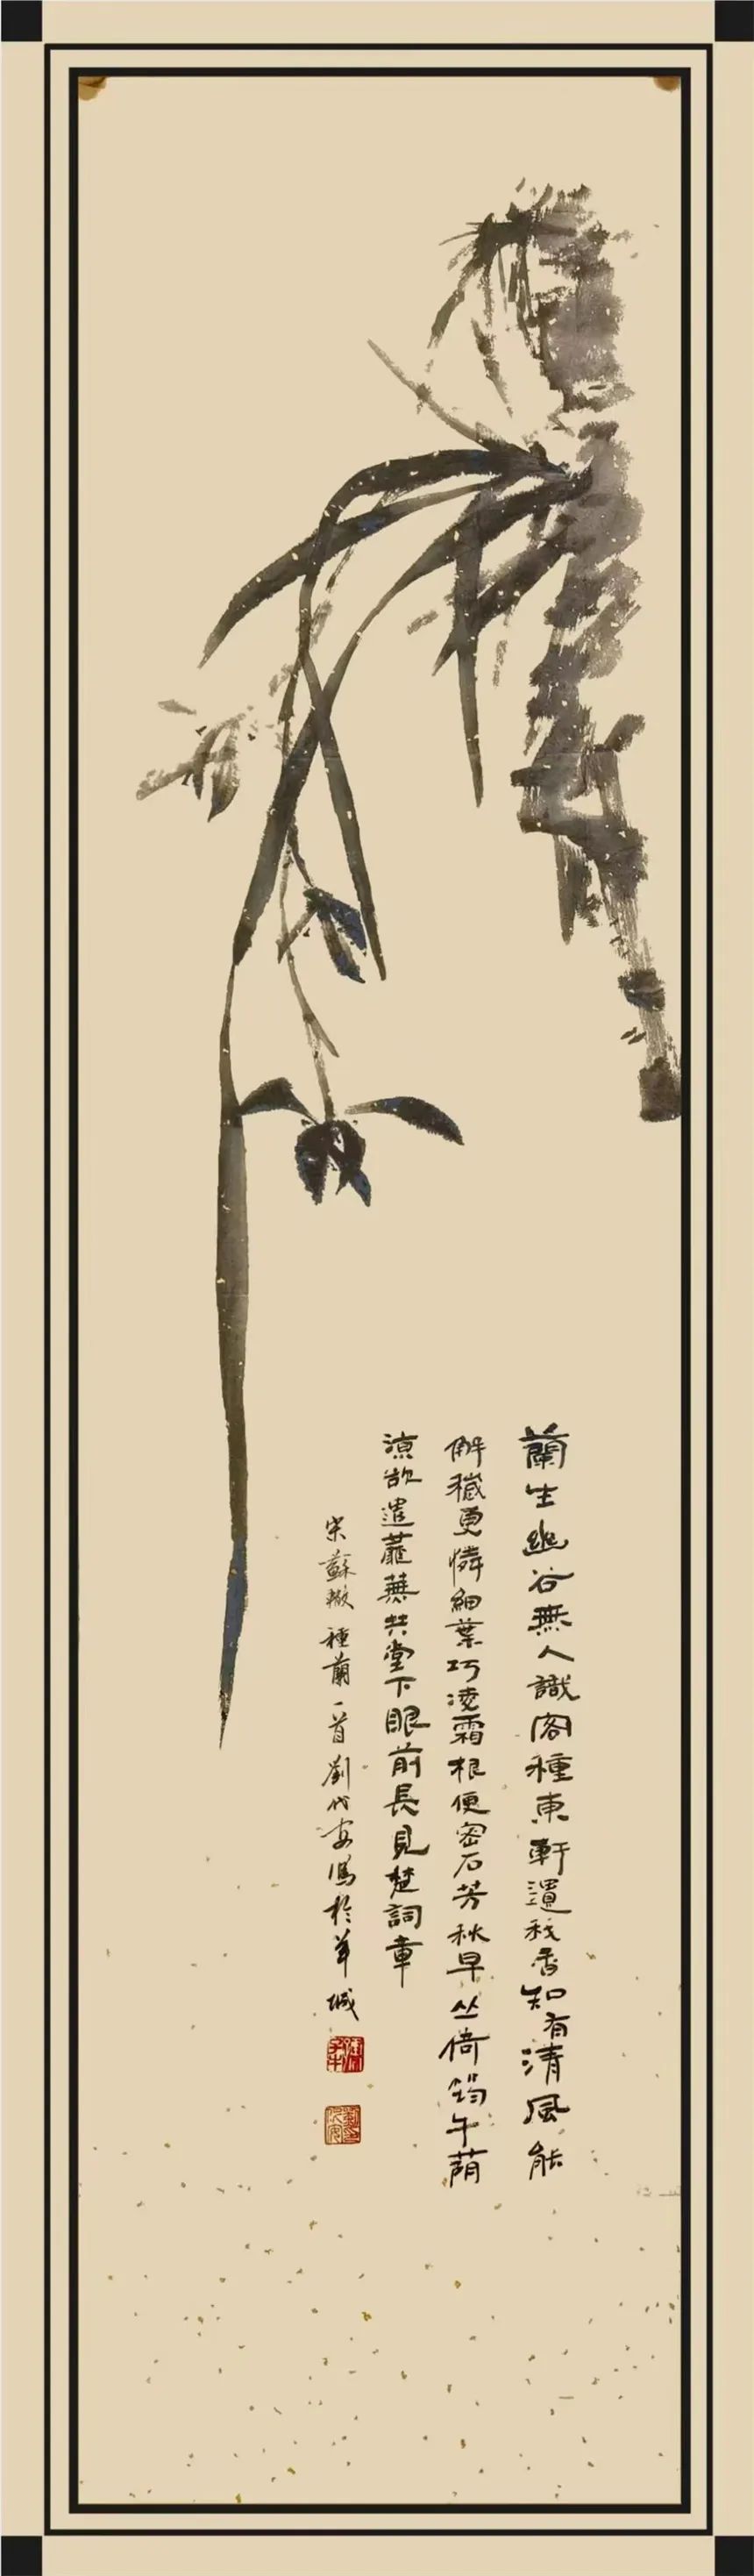 蘭生幽谷無人識客種東軒遺我香知有清風能
解穢更憐細葉巧凌霜根便密石芳秋早丛倚筠午蔭
凉欲遣蘼蕪共堂下眼前長見楚詞章
宋蘇轍種蘭一首劉代安寫於羊城